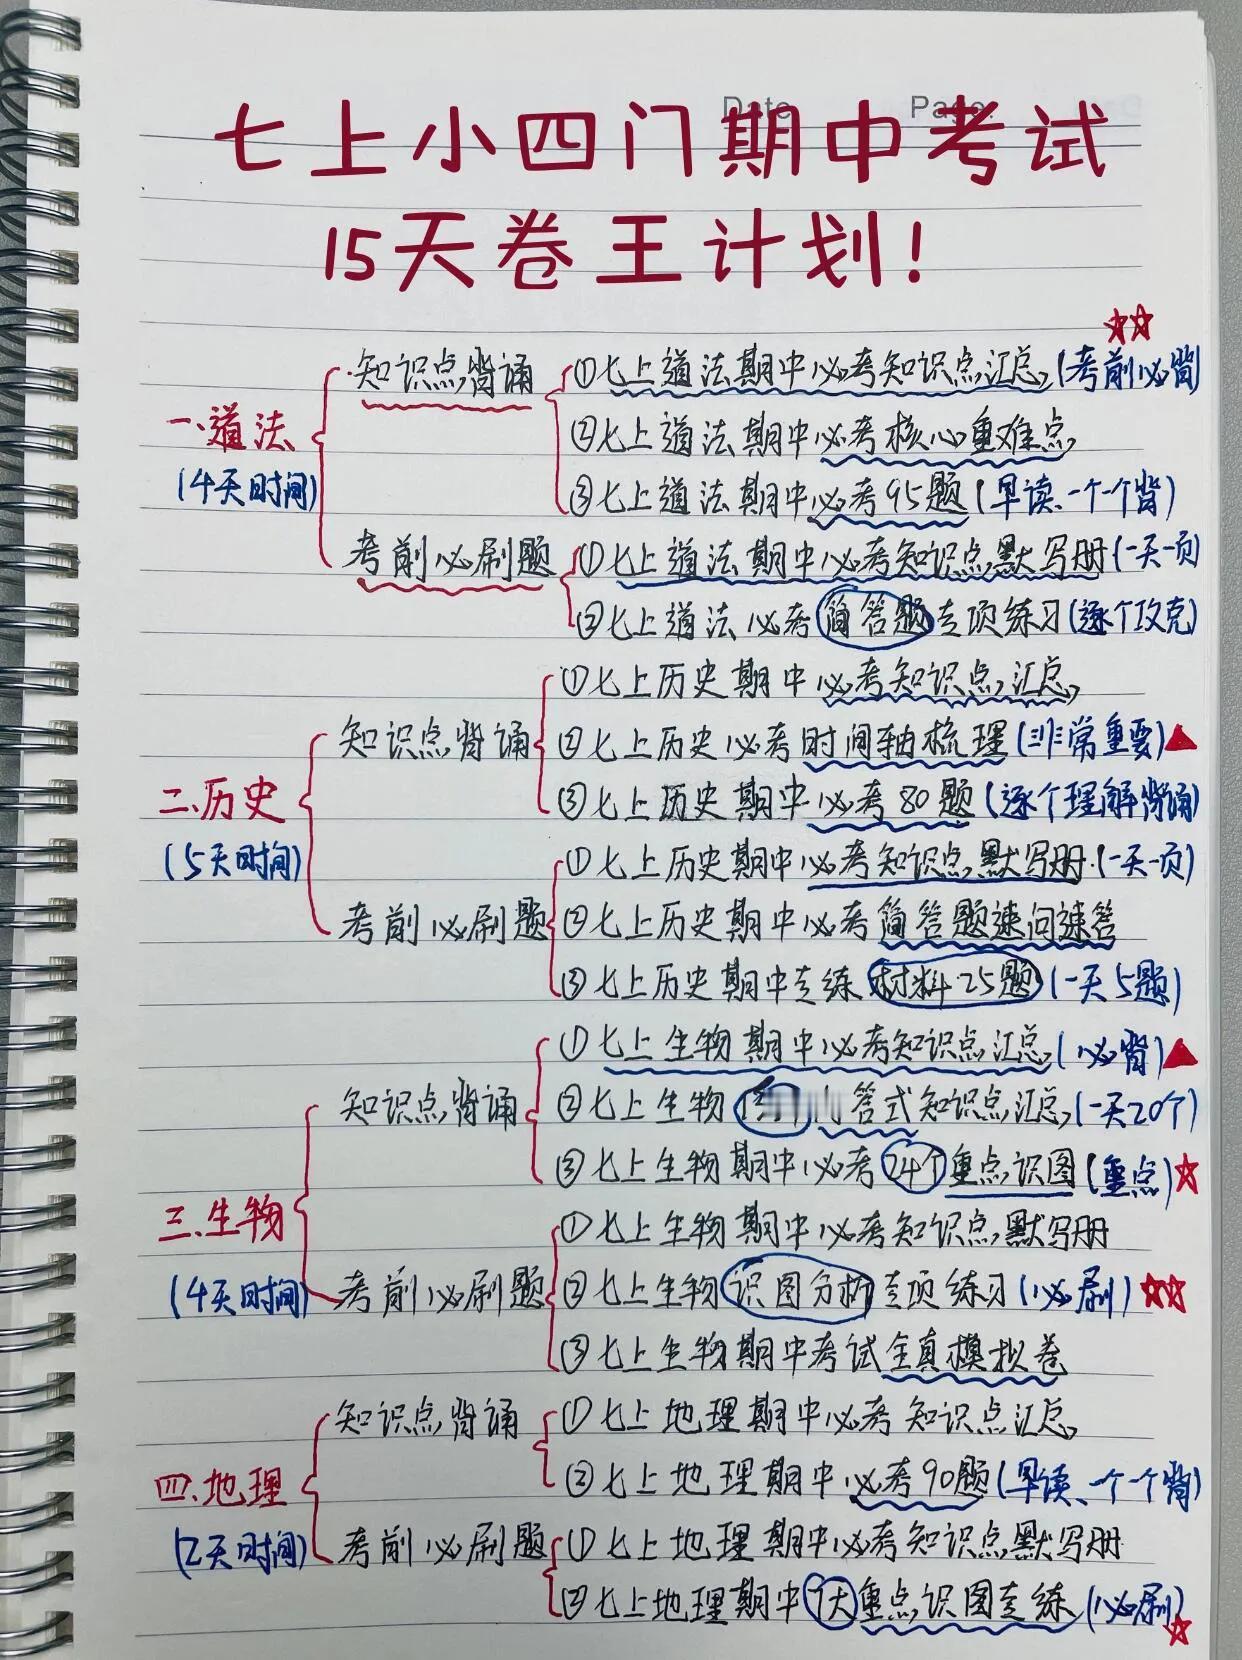 Date Page:
七上小四门期中考试
15天卷王计划!
一、道法
(4天时间)
知识点背诵
①七上道法期中必考知识点汇总(考前必背)
②七上道法期中必考核心重难点
③七上道法期中必考95题(早读、一个一个背)
考前必刷题
①七上道法期中必考知识点默写册(一天一页)
②七上道法必考简答题专项练习(逐个攻克)
二、历史
(5天时间)
知识点背诵
①七上历史期中必考知识点汇总
②七上历史必考时间轴梳理(非常重要)
③七上历史期中必考80题(逐个理解背诵)
考前必刷题
①七上历史期中必考知识点默写册(一天一页)
②七上历史期中必考简答题速问速答
③七上历史期中专练材料25题(一天5题)
三、生物
(4天时间)
知识点背诵
①七上生物期中必考知识点汇总(必背)
②七上生物 答式知识点汇总(一天20个)
③七上生物期中必考24个重点识图(重点)
考前必刷题
①七上生物期中必考知识点默写册
②七上生物识图分析专项练习(必刷)
③七上生物期中考试全真模拟卷
四、地理
(2天时间)
知识点背诵
①七上地理期中必考知识点汇总
②七上地理期中必考90题(早读、一个一个背)
考前必刷题
①七上地理期中必考知识点默写册
②七上地理期中7大重点识图专练(必刷)